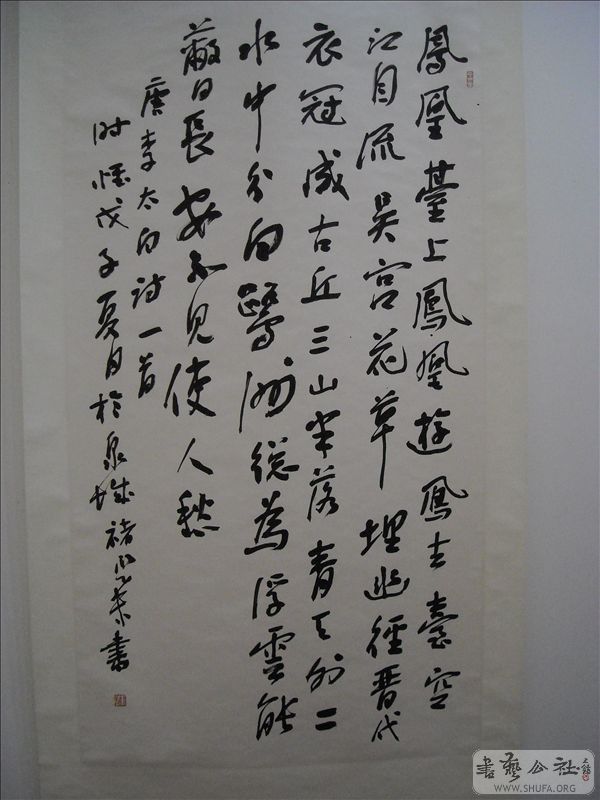 鳳凰臺上鳳凰遊鳳去臺空
江自流吳宮花草埋幽徑晉代
衣冠成古丘三山半落青天外二
水中分白鷺洲總為浮雲能
蔽日長安不見使人愁
唐李太白詩一首
时戊子夏日於泉城褚書
書藝公社
WWW.SHUFA.ORG